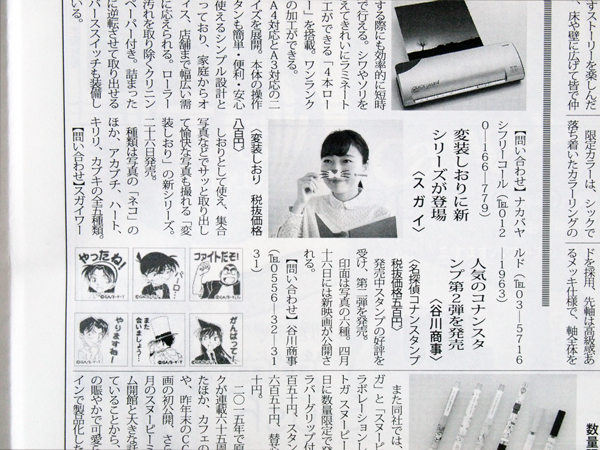 すストーリーを楽しんだ
、床や壁に広げて皆で仲
する際にも効率的に短時
で行える。シワやソリを
えてきれいにラミネート
工ができる「4本ロー
ー」を搭載。ワンランク
の加工ができる。
A4対応とA3対応の二
イズを展開。本体の操作
タンも簡単・便利・安心
使えるシンプル設計と
っており、家庭からオ
ィス、店舗まで幅広い需
に応えられる。ローラー
汚れを取り除くクリニン
ペーパー付き。詰まった
に逆転させて取り出せる
バーススイッチも装備し
いる。
限定カラーは、シックで
落ち着いたカラーリングの
【問い合わせ】ナカバヤ
シフリーコール(℡012
0―166―779)
変装しおりに新
シリーズが登場
〈スガイ〉
〈変装しおり 税抜価格
八百円〉
しおりとして使え、集合
写真などでサッと取り出し
て愉快な写真も撮れる「変
装しおり」の新シリーズ。
二十六日発売。
種類は写真の「ネコ」の
ほか、アカプチ、ハート、
キリリ、カブキの全五種類。
【問い合わせ】スガイワー
ドを採用、先軸は高級感あ
るメッキ仕様で、軸全体を
ルド(℡03―5716
―1963)
人気のコナンスタ
ンプ第2弾を発売
〈谷川商事〉
〈名探偵コナンスタンプ
税抜価格五百円〉
発売中スタンプの好評を
受け、第二弾を発売。
印面は写真の六種。四月
十六日には新映画が公開さ
れる。
【問い合わせ】谷川商事
(℡0556―32―31
31)
ファイトだぞ!
バーロー
やったね!
がんばって!
また会いましょう!
やりますね!
また同社では、
ガ」と「スヌーピー
ラボレーションし
トガ スヌーピー
日に数量限定で発
ラバーグリップ付
百五十円、スタン
六百五十円、替芯
十円。
二〇一五年で原
クが連載六十五周
たほか、カフェの
や、昨年末のCG
画の初公開、さら
月のスヌーピーミ
ム開館と大きな話
ていることから、
の賑やかで可愛ら
インで製品化した
数量